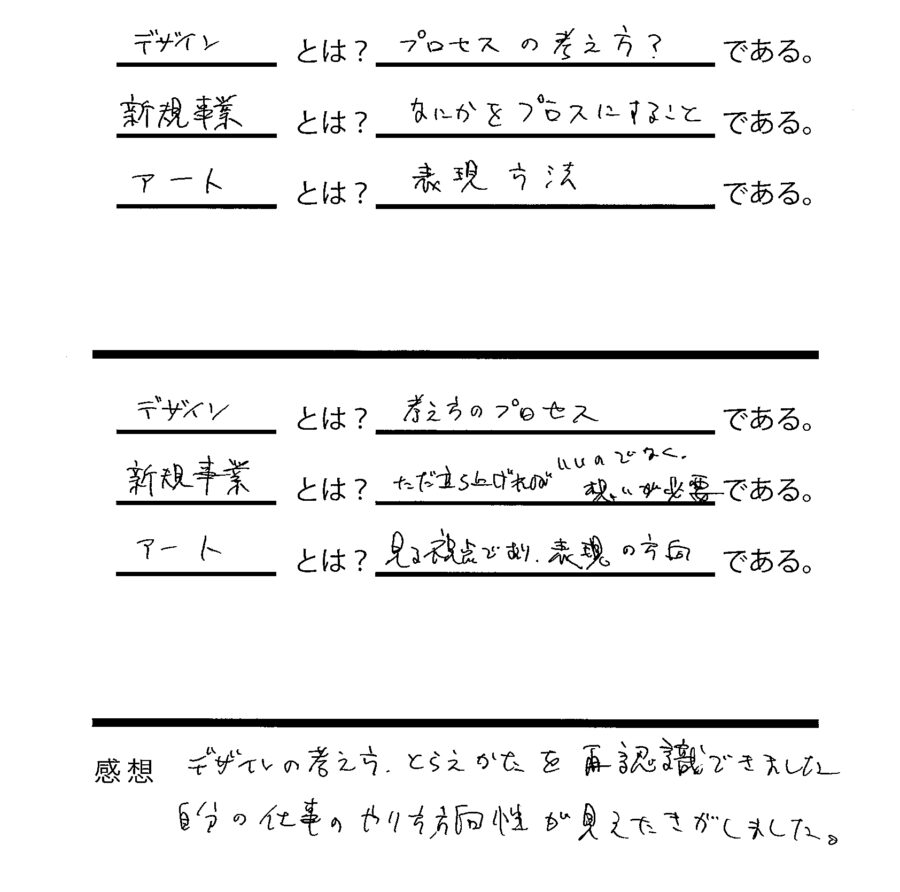 デザイン とは？ プロセスの考え方？ である。
新規事業 とは？ なにかをプロスにすること である。
アート とは？ 表現方法 である。
デザイン とは？ 考え方のプロセス である。
新規事業 とは？ ただ立ち上げればいいのでなく、想いが必要 である。
アート とは？ 見る視点であり、表現の方向 である。
感想 デザインの考え方、とらえかたを再認識できました
自分の仕事のやり方方向性が見えたきがしました。